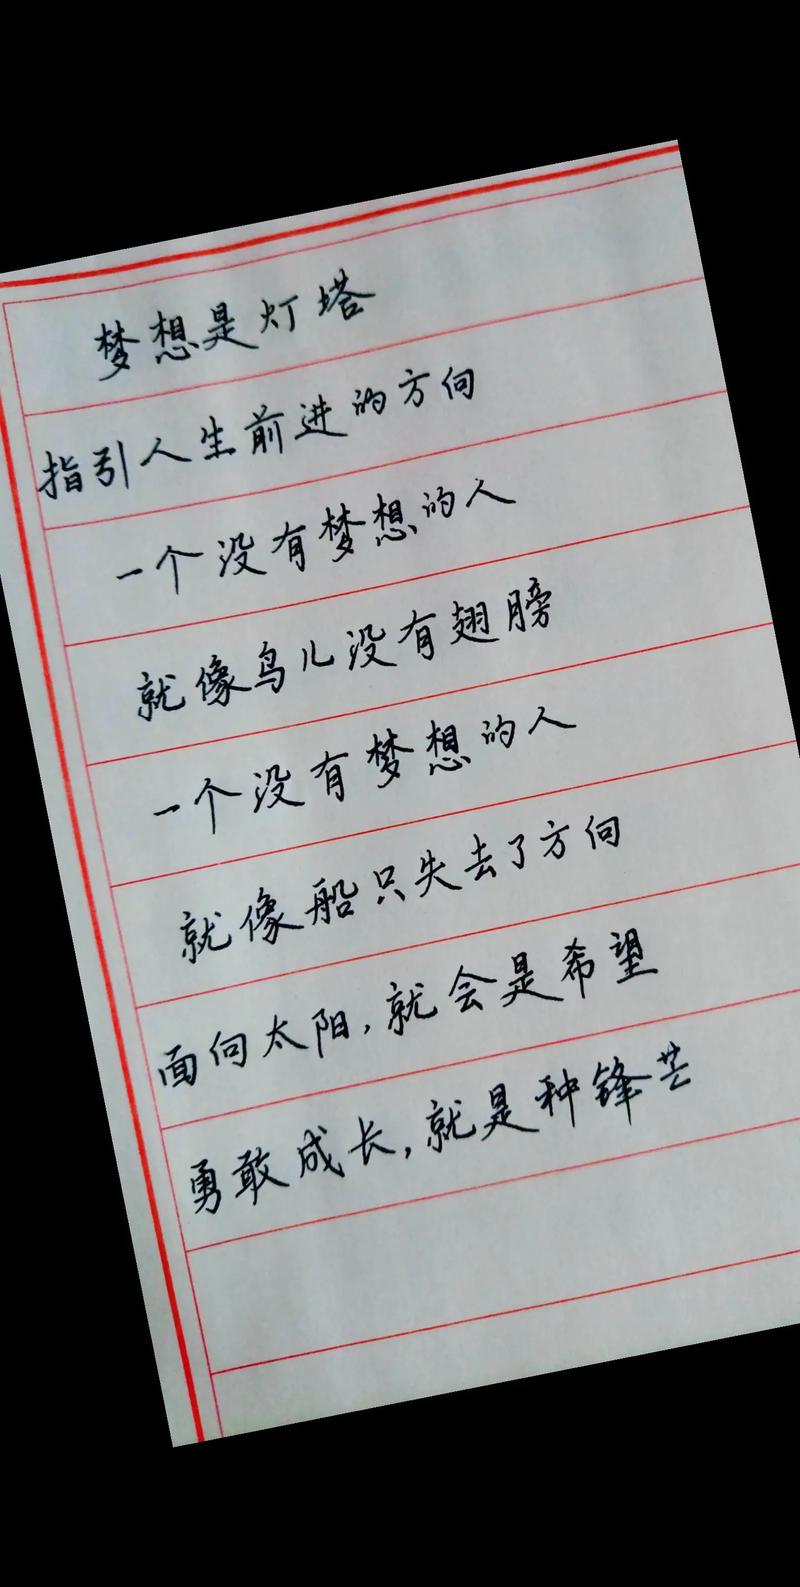 梦想是灯塔
指引人生前进的方向
一个没有梦想的人
就像鸟儿没有翅膀
一个没有梦想的人
就像船只失去了方向
面向太阳,就会是希望
勇敢成长,就是种锋芒